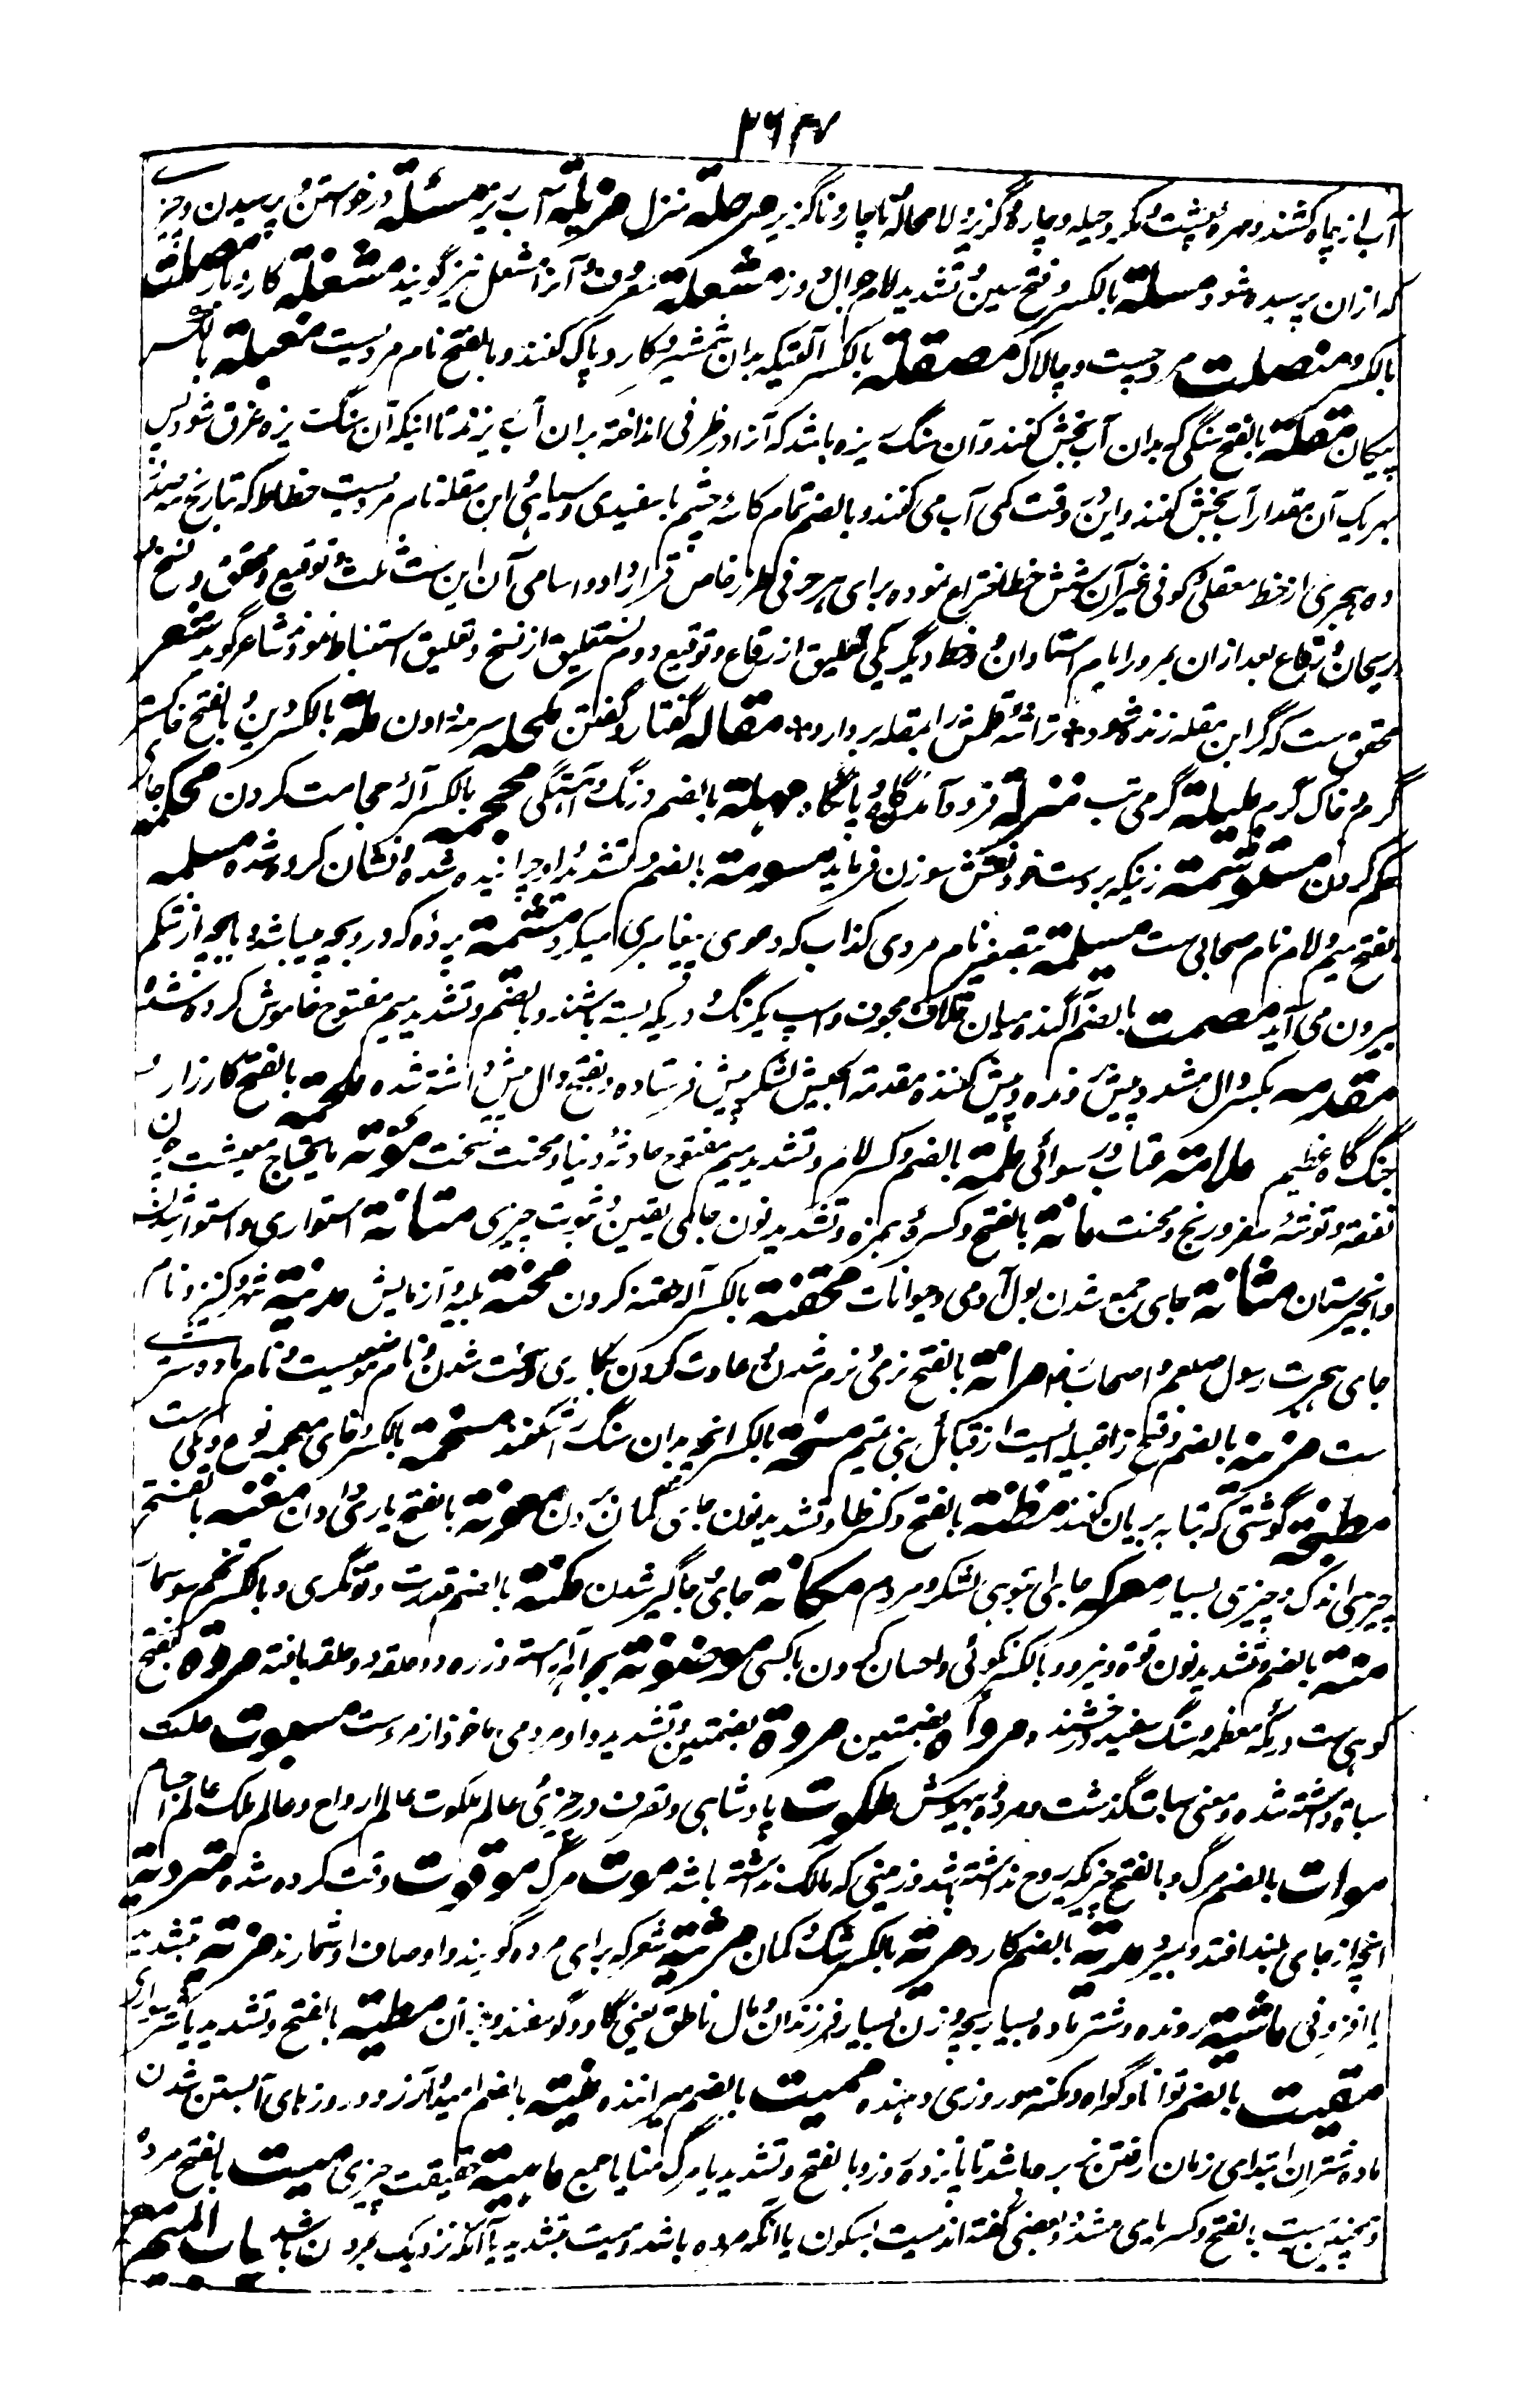 آب از چاه کشند و مهره پشت و مکر و حیله و چاره و گزیر و لامحاله ناچار و ناگزیر مرحلة منزل مزبلة آب ریز مسئلة درخواستن و پرسیدن و چیز
که ازان پرسیده شود مسلة بالکسر و فتح سین و تشدید لام جوال دوز مشعلة معروف و آنرا مشعل نیز گویند مشغلة کار و بار مصلت
بالکسر و منصلت مرد چست و چالاک مصقلة بالکسر آلتیکه بدان شمشیر و کارد پاک کنند و بالفتح نام مردیست معبلة بالکسر
پیکان مقلة بالفتح سنگی که بدان آب بخش کنند و آن سنگ ریزه باشد که آنرا در ظرفی انداخته بران آب ریزند تا اینکه آن سنگ ریزه غرق شود پس
بهر یک آن مقدار آب بخش کنند و این وقت کمی آب می کنند و بالضم تمام کاسۀ چشم با سفیدی و سیاهی ابن مقله نام مردیست خطاط که بتاریخ سه صد
ده هجری از خط معقلی و کوفی غیر آن شش خط اختراع نموده برای هر حرفی طرز خاص قرار داد و اسامی آن این ست ثلث و توقیع و محقق و نسخ و
ریحان و رقاع بعد ازان بمرور ایام استادان دو خط دیگر یکی تعلیق از رقاع و توقیع دوم نستعلیق از نسخ و تعلیق استنباط نمودند شاعر گوید شعر
محقق ست که گر ابن مقله زنده شود ٭ تراشۀ قلمش را بمقله بردارد ٭ مقاله گفتار و گفتن مکحله سرمه دان ملة بالکسر دین و بالفتح خاکستر
گرم و خاک گرم ملیلة گرمی تب منزلة فرود آمدنگاه و پایگاه مهلة بالضم درنگ و آهستگی محجمه بالکسر آلۀ حجامت کردن محکمه جای
حکم کردن مستوشمة زنیکه بر دست خود نقش سوزن فرماید مسومة بالضم و تشدید واو چرانیده شده و نشان کرده شده مسلمه
بفتح میم و لام نام صحابی ست مسیلمة بتصغیر نام مردی کذاب که دعوی پیغامبری میکرد مشیمة پرده که درو بچه میباشد و با بچه از شکم
بیرون می آید مصمت بالضم آگنده میان خلاف مجوف و اسپ یکرنگ و دریکه بسته باشند و بالضم و تشدید میم مفتوح خاموش کرده شده
مقدمه بکسر دال مشدد پیش رونده و پیش کننده مقدمة الجیش لشکر پیش فرستاده و بفتح دال پیش داشته شده ملحمة بالفتح کارزار و
جنگ گاه عظیم ملامة عتاب و رسوائی ملمة بالضم و کسر لام و تشدید میم مفتوح حادثۀ دنیا و محنت سخت مؤنة مایحتاج معیشت چون
نفقه و توشۀ سفر و رنج و محنت مانة بالفتح و کسر همزه و تشدید نون جای یقین و ثبوت چیزی متانة استواری و استوار شدن
و انجیرستان مثانة جای جمع شدن بول آدمی و حیوانات محقنة بالکسر آله حقنه کردن محنة بلیه و آزمایش مدینة شهر و کنیز و نام
جای هجرت رسول صلعم و اصحاب مرانة بالفتح نرمی و نرم شدن و عادت کردن بکاری و سخت شدن و نام موضعیست و نام ماده شتر
ست مزینة بالضم و فتح زا قبیله ایست از قبائل بنی تمیم
مطنجة گوشتی که بتابه بریان کنند مظنة بالفتح و کسر ظا و تشدید نون جای گمان بردن معونة بالفتح یاری دادن مغنه بالفتح
چیزی اندک و چیزی بسیار معرکه جای انبوهی لشکر و مردم مکانة جای و جاگیر شدن مکنة بالضم قدرت و توانگری و بالکسر تخم سوسمار
منة بالضم و تشدید نون قوة و نیرو و بالکسر نکوئی و احسان کردن با کسی موضونة بجواهر آراسته و زره دو حلقه دو حلقه بافته مروة بفتح
کوهی ست در مکه معظمه و سنگ سفید درخشنده و مروأة بضمتین مروة بضمتین و تشدید واو مردمی ماخوذ از مرء ست مسبوت
سباة داشته شده و معنی سبات گذشت و مرده و بیهوش ملکوت پادشاهی و تصرف در چیزی عالم ملکوت عالم ارواح و عالم ملک عالم اجسام
موات بالضم مرگ و بالفتح چیزیکه روح نداشته باشد و زمینی که مالک نداشته باشد موت مرگ موقوت وقت کرده شده متردیة
آنچه از جای بلند افتد و میرد مدیة بالضم کارد مریة بالکسر شک و گمان مرثیة شعر که برای مرده گویند و اوصاف او شمارند مزیة بتشدید
یا افزونی ماشیة رونده و شتر ماده بسیار بچه و زن بسیار فرزند و مال ناطق یعنی گاو و گوسفند و جز آن مطیة بالفتح و تشدید یا شتر سواری
مقیت بالضم توانا و گواه و روزی دهنده ممیت بالضم میراننده منیة بالضم امید و آرزو و روزهای آبستن شدن
ماده شتران ابتدای زمان رفتن نر بر ماده باشد تا پانزده روز و بالفتح و تشدید یا مرگ منایا جمع ماهیة حقیقت چیزی میت بالفتح مرده
و همچنین میت بالفتح و کسر یای مشدد و بعضی گفته اند میت بسکون یا آنکه مرده باشد و میت بتشدید یا آنکه نزدیک بمردن باشد باب المیم مع